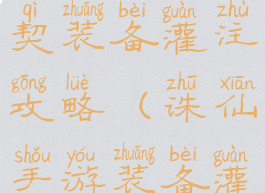 qì zhuāng bèi guàn zhù
契装备灌注
gōng lüè zhū xiān
攻略（诛仙
shǒu yóu zhuāng bèi guàn
手游装备灌